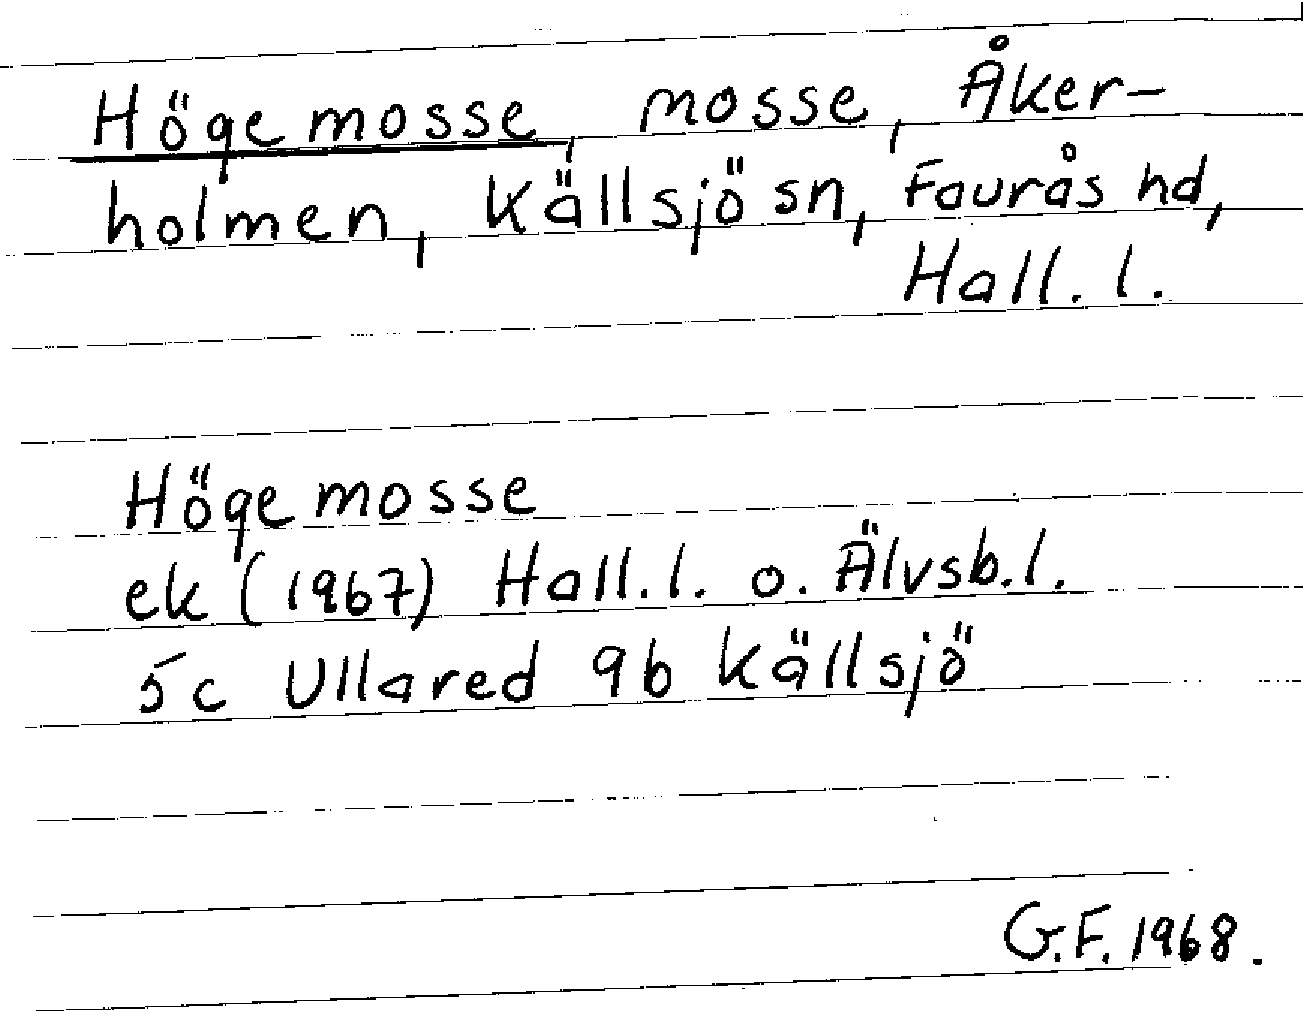 Höge mosse, mosse, Åker-
holmen, Källsjö sn, Faurås hd,
Hall. l.
Höge mosse
ek (1967) Hall. l. o. Älvsb. l.
5c Ullared 9b Källsjö
G.F. 1968.